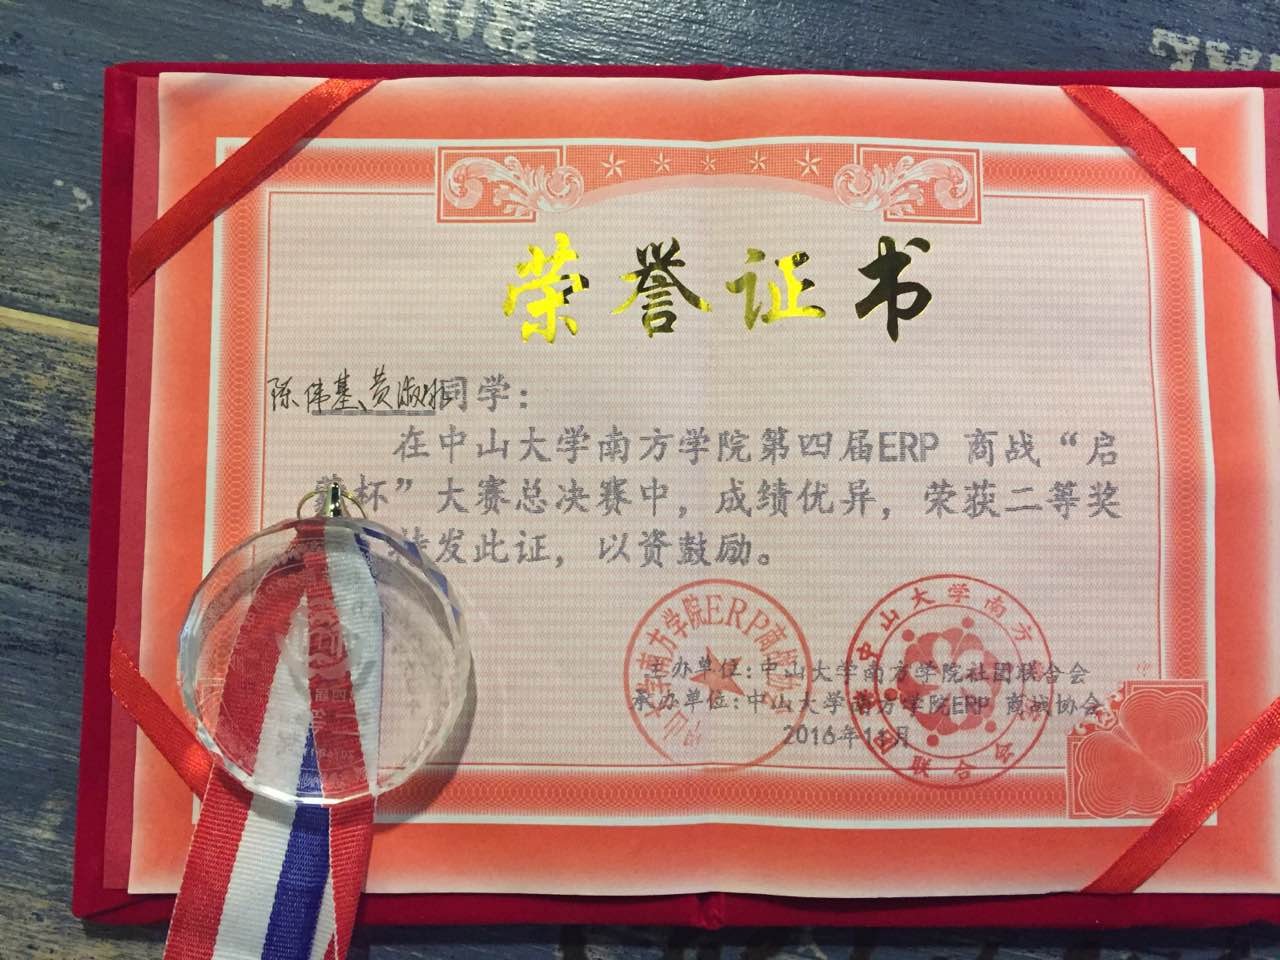 荣誉证书
陈伟基、黄淑 同学:
在中山大学南方学院第四届ERP 商战“启
杯”大赛总决赛中,成绩优异,荣获二等奖
特发此证,以资鼓励。
中山大学南方学院ERP商战
中山大学南方 联合会
主办单位:中山大学南方学院社团联合会
承办单位:中山大学南方学院ERP 商战协会
2016年11月
第四届